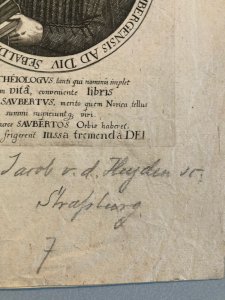 BERGENSIS AD DIV SEBALD
THEOLOGVS tanti qui nominis implet
vitâ, conveniente libris
SAVBERTVS, merito quem Norica tellus
summi suspiciuntq; viri.
SAVBERTOS Orbis haberet,
frigerent iussa tremenda DEI
Jacob v. d. Heyden sc.
Straßburg
7